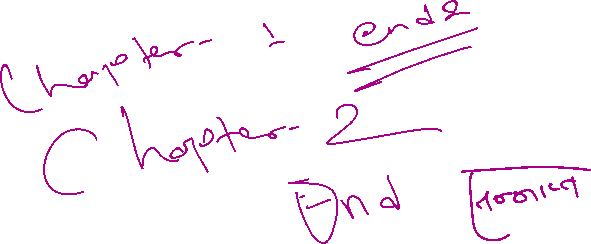 Chapter- 1 ends
Chapter- 2
End